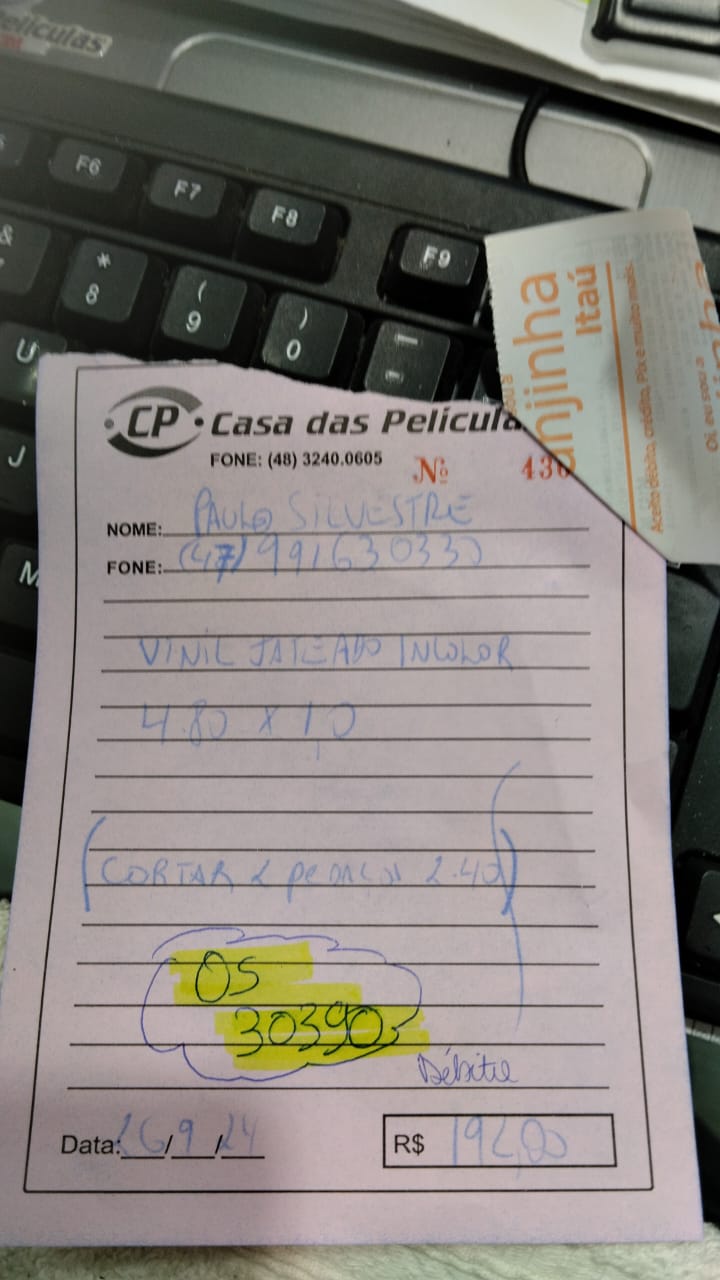 Películas
F6
F7
F8
F9
&
*
8
(
9
)
0
-
U
J
M
anjinha
Itaú
Aceito débito, crédito, Pix e muito mais.
Oi, eu sou a
CP • Casa das Película
FONE: (48) 3240.0605
Nº 430
NOME: PAULO SILVESTRE
FONE: (47) 991630330
VINIL JATEADO INCOLOR
4.80 x 1,0
(CORTAR 2 PEDAÇOS 2.40)
OS
303903
Débito
Data: 26/9/24
R$ 192,00